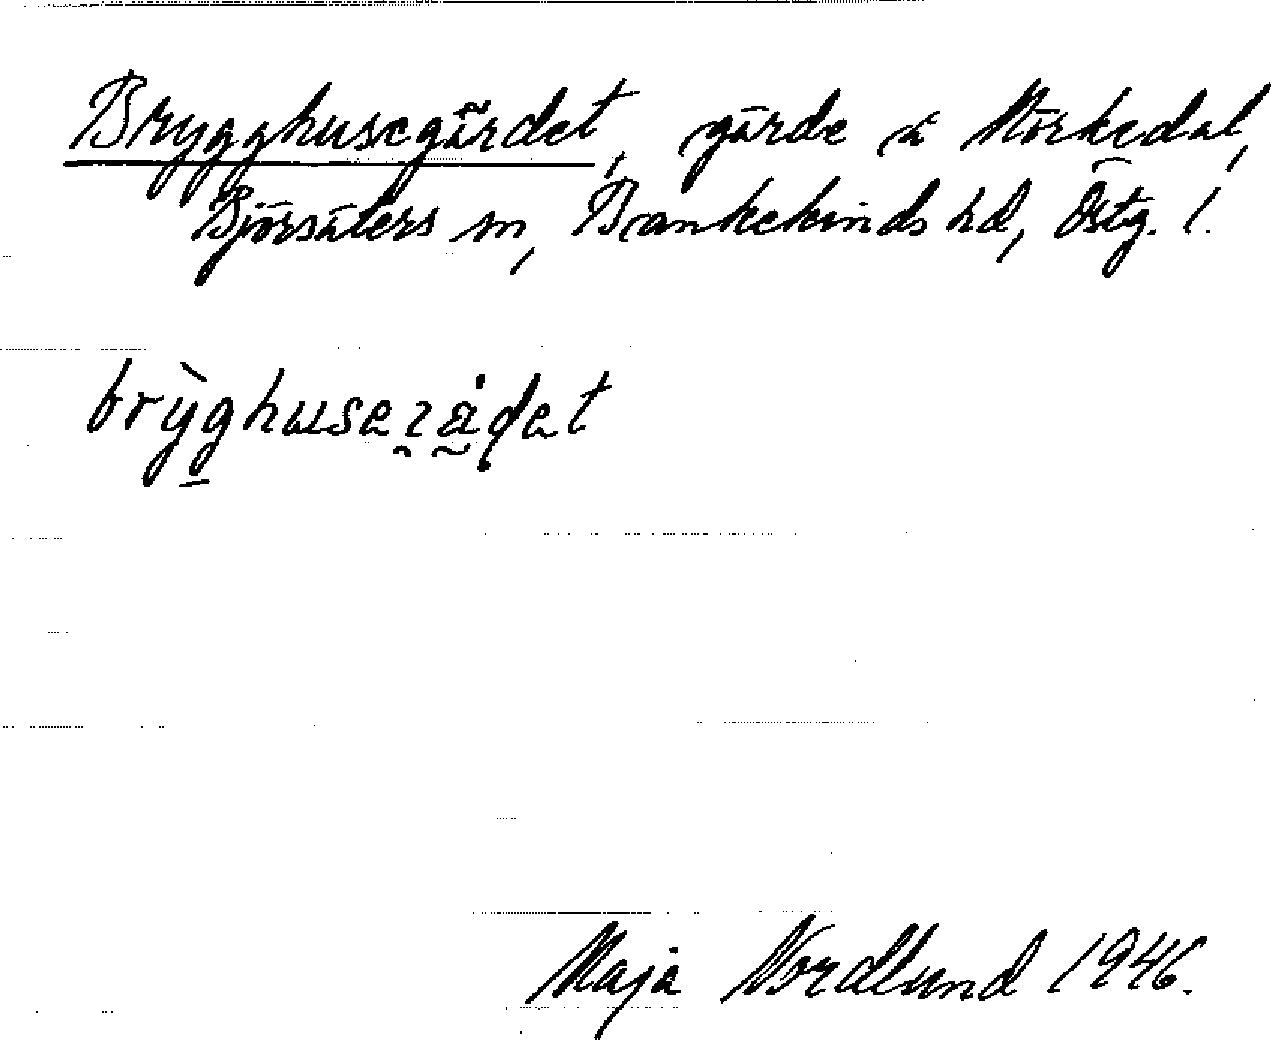 Brygghusegärdet, gärde å Mörkedal,
Björsäters sn, Bankekinds hd, Östg. l.
brỳghuseɿådet
Maja Nordlund 1946.